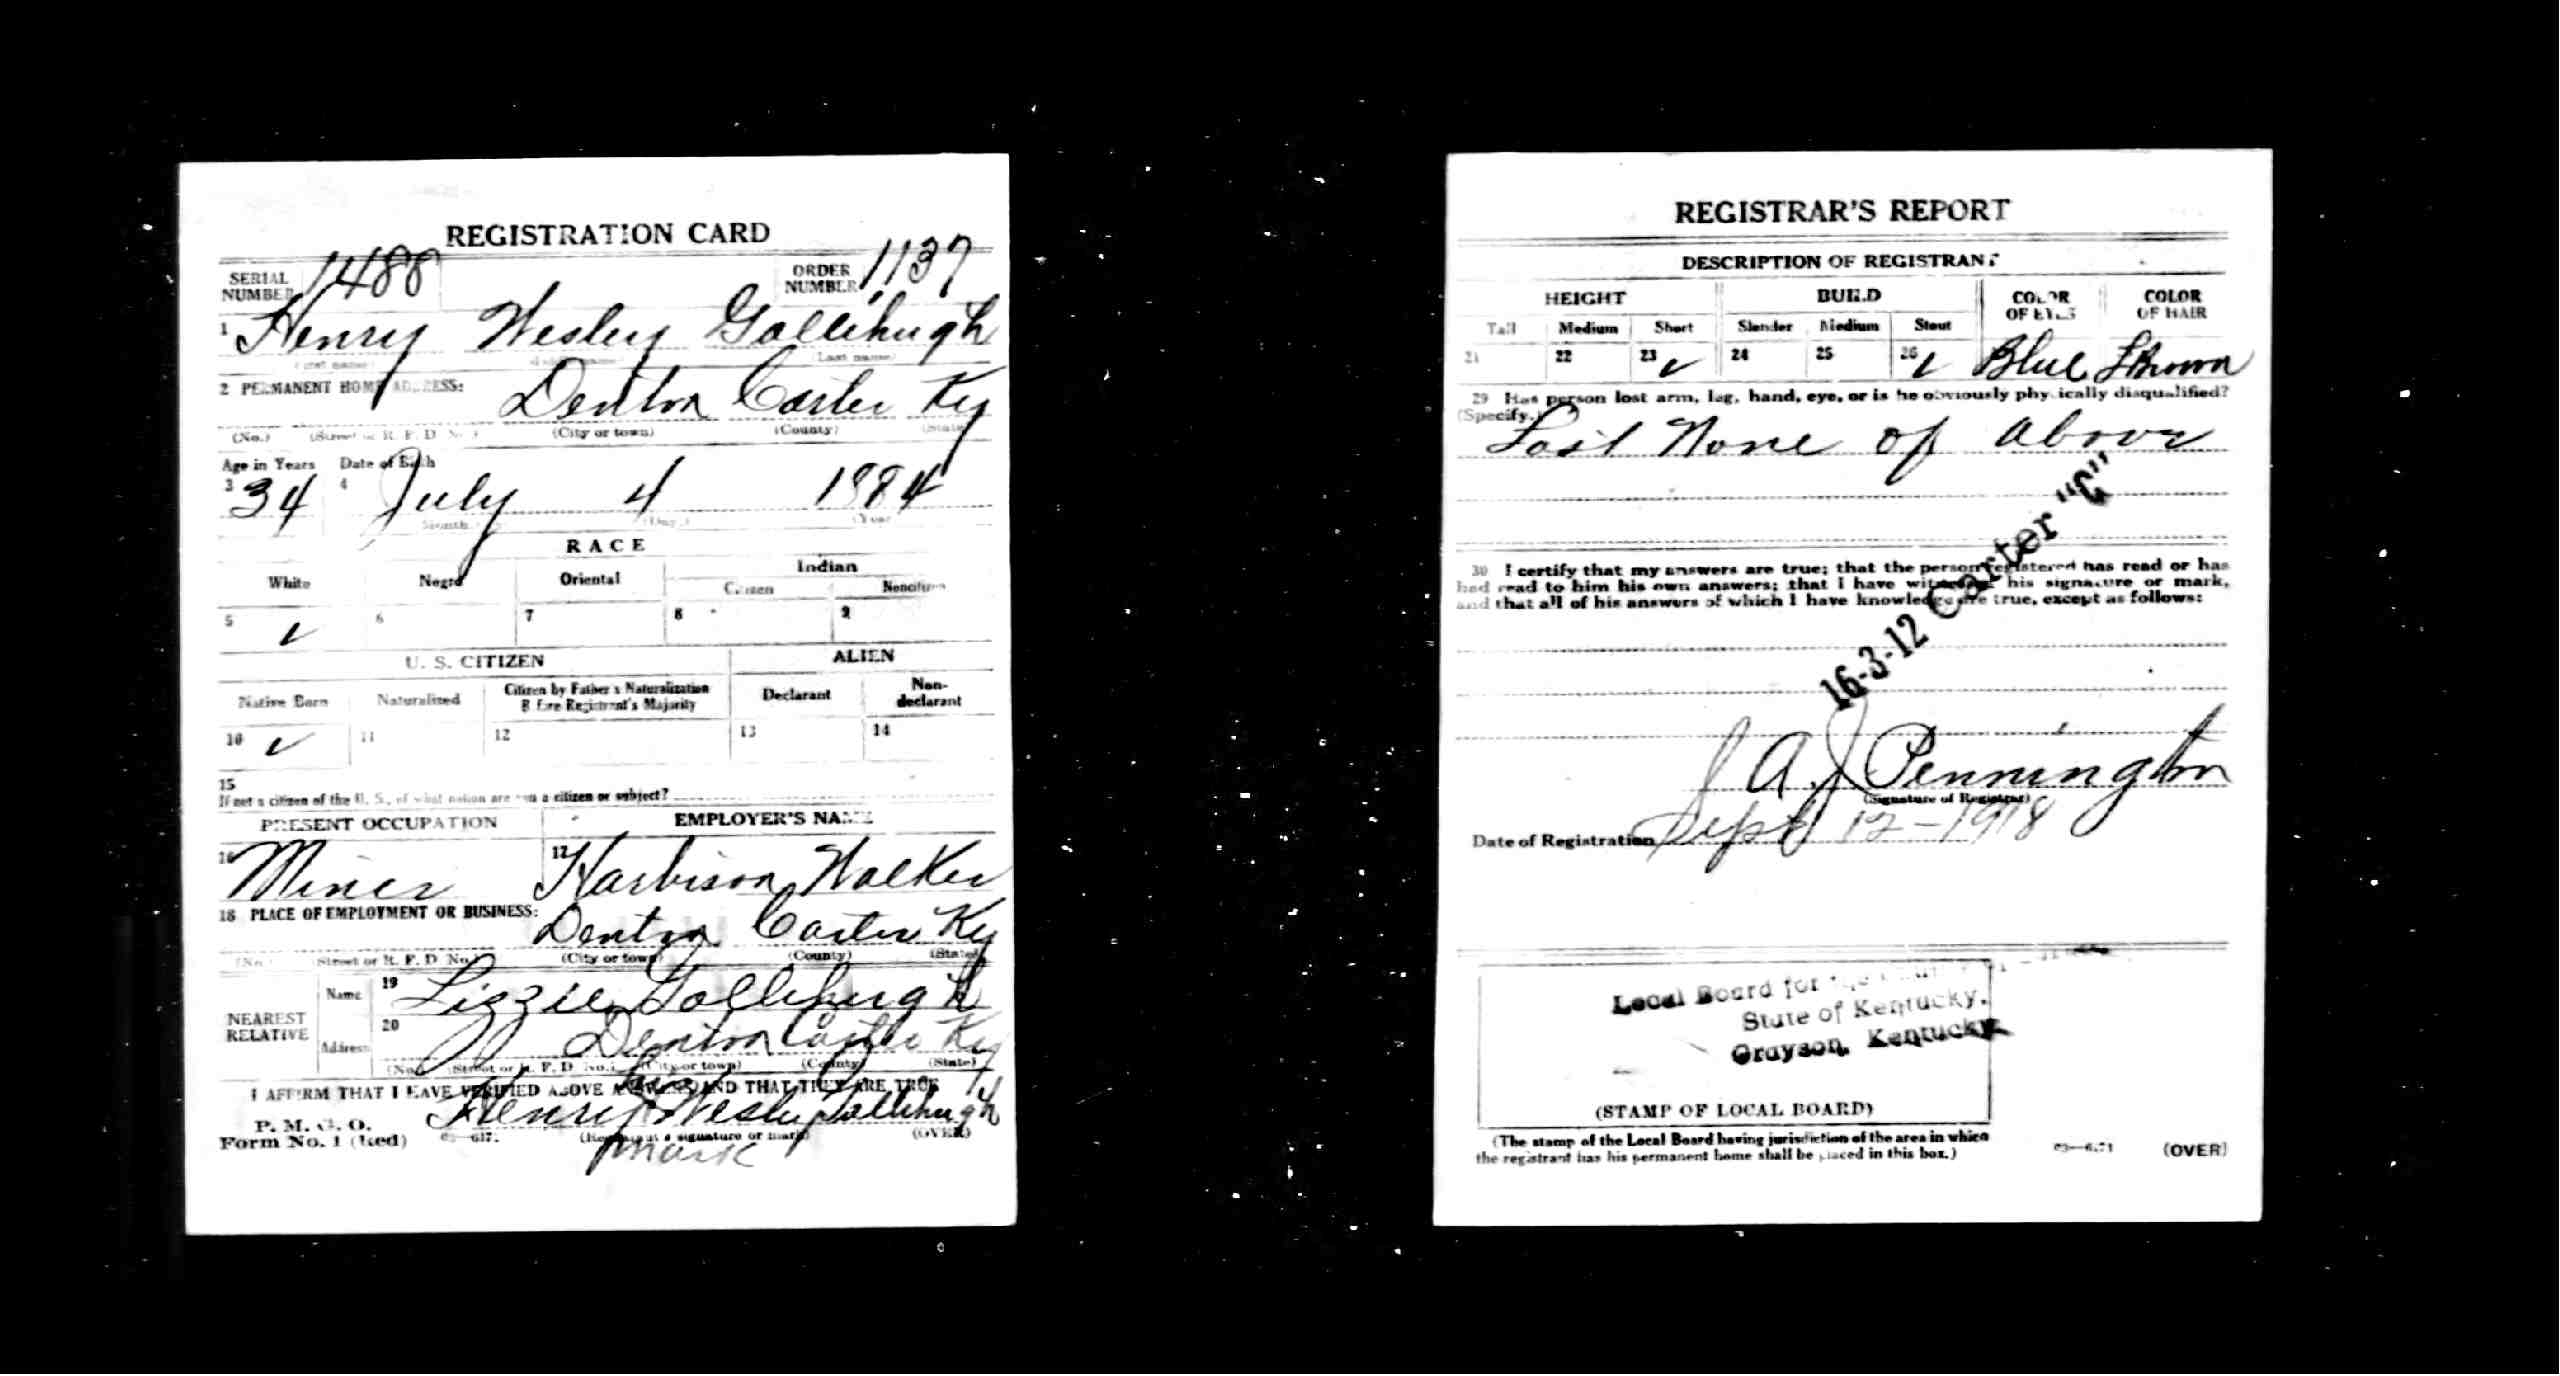 REGISTRATION CARD
SERIAL NUMBER 1488 ORDER NUMBER 1137
1 Henry Wesley Gollihugh
(First name) (Last name)
2 PERMANENT HOME ADDRESS: Denton Carter Ky
(No.) (Street or R. F. D. No.) (City or town) (County) (State)
Age in Years Date of Birth
3 34 4 July 4 1884
Month. (Day.) (Year
RACE
White Negro Oriental Indian
Citizen Noncitizen
5 ✓ 6 7 8 9
U. S. CITIZEN ALIEN
Native Born Naturalized Citizen by Father's Naturalization Before Registrant's Majority Declarant Non-declarant
10 ✓ 11 12 13 14
15
If not a citizen of the U. S., of what nation are you a citizen or subject?
PRESENT OCCUPATION EMPLOYER'S NAME
16 Miner 17 Harbison Walker
18 PLACE OF EMPLOYMENT OR BUSINESS:
Denton Carter Ky
(No.) Street or R. F. D. No.) (City or town) (County) (State)
NEAREST RELATIVE Name 19 Lizzie Gollihugh
Address 20 Denton Carter Ky
(No.) (Street or R. F. D. No.) (City or town) (County) (State)
I AFFIRM THAT I HAVE VERIFIED ABOVE ANSWERS AND THAT THEY ARE TRUE
his
P. M. G. O.
Form No. 1 (Red) Henry Wesley Gollihugh
(Registrant's signature or mark) (OVER)
mark
REGISTRAR'S REPORT
DESCRIPTION OF REGISTRANT
HEIGHT BUILD COLOR OF EYES COLOR OF HAIR
Tall Medium Short Slender Medium Stout
21 22 23 ✓ 24 25 26 ✓ Blue Brown
29 Has person lost arm, leg, hand, eye, or is he obviously physically disqualified?
(Specify.)
Lost None of above
30 I certify that my answers are true; that the person registered has read or has
had read to him his own answers; that I have witnessed his signature or mark,
and that all of his answers of which I have knowledge are true, except as follows:
16-3-12 Carter "C"
Pennington
(Signature of Registrar)
Date of Registration Sept 12-1918
Local Board for the
State of Kentucky,
Grayson, Kentucky
(STAMP OF LOCAL BOARD)
(The stamp of the Local Board having jurisdiction of the area in which
the registrant has his permanent home shall be placed in this box.)
(OVER)